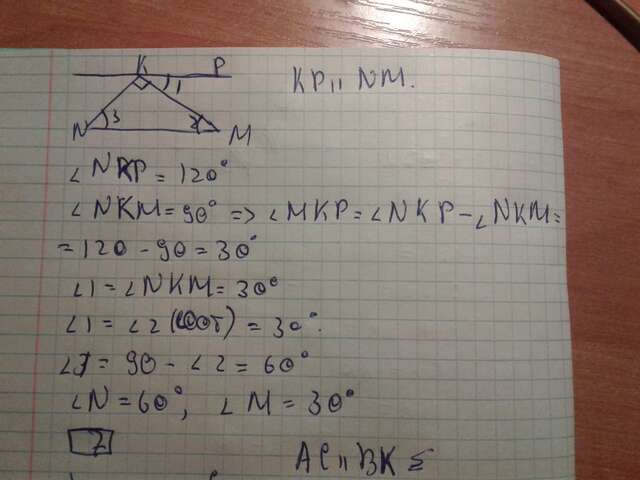 K P
1
KP || NM.
N 3 2 M
∠NKP = 120°
∠NKM = 90° => ∠MKP = ∠NKP - ∠NKM =
= 120 - 90 = 30°
∠1 = ∠NKM = 30°
∠1 = ∠2 (соот) = 30°.
∠3 = 90 - ∠2 = 60°
∠N = 60°, ∠M = 30°
7
AC || BK